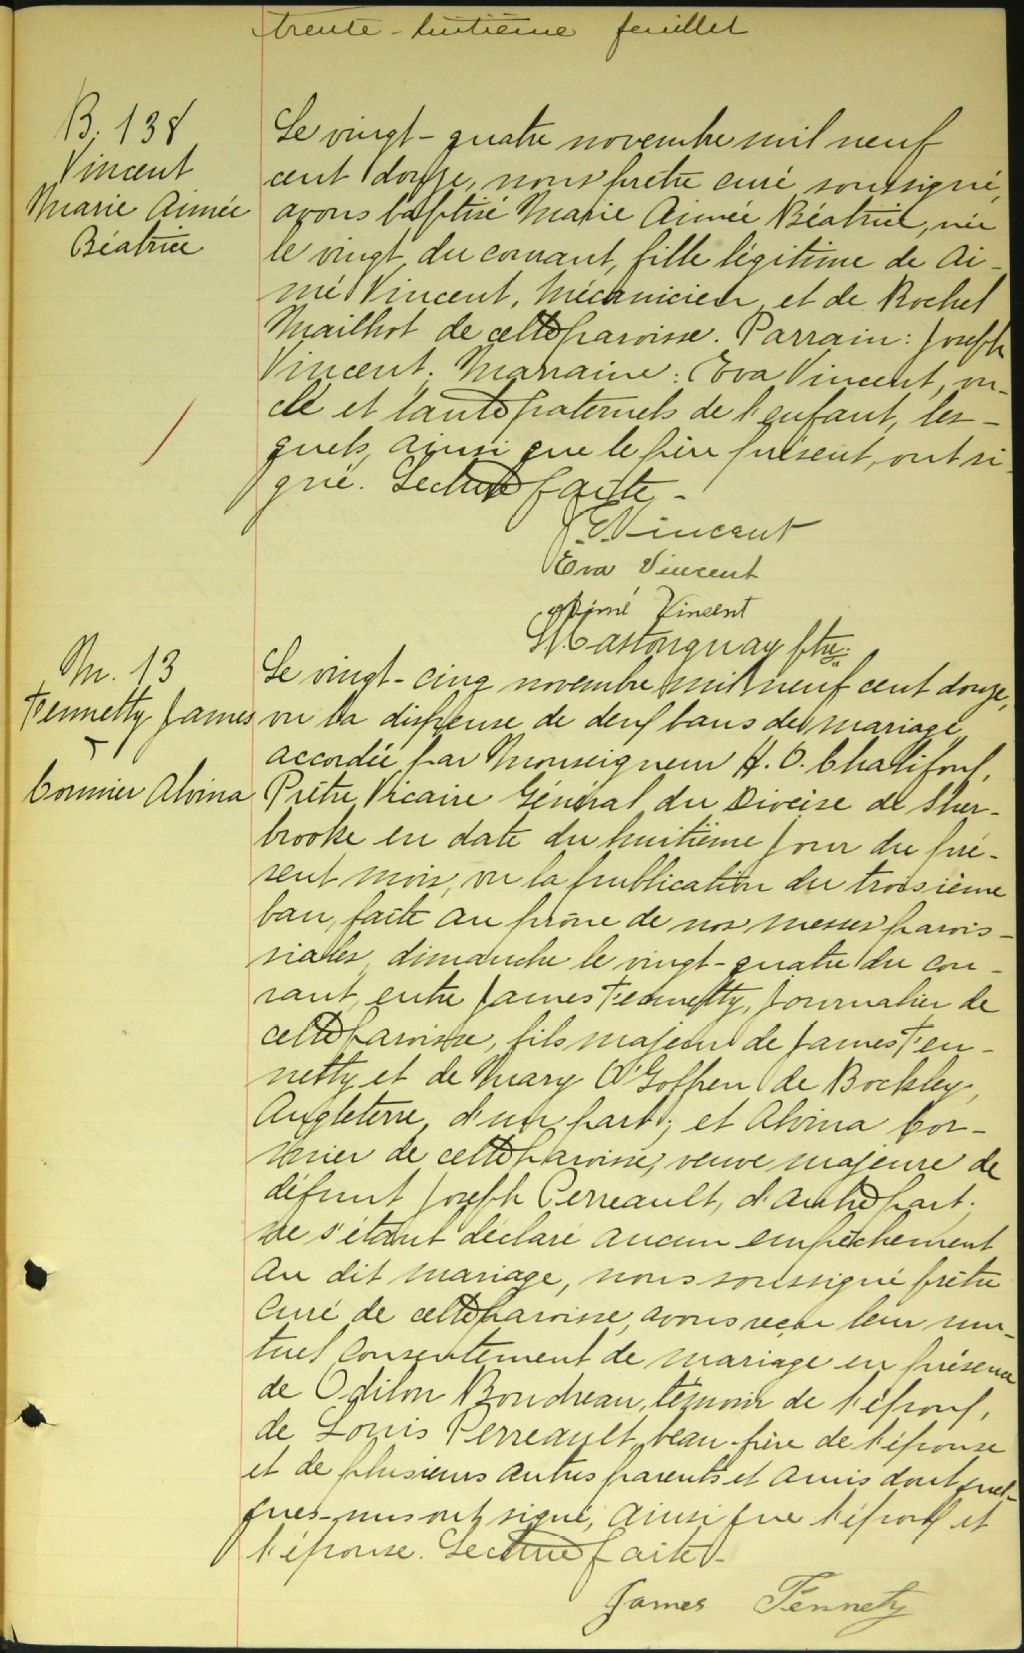 trente-huitième feuillet
B. 138
Vincent
Marie Aimée
Béatrice
Le vingt-quatre novembre mil neuf
cent douze, nous prêtre curé soussigné,
avons baptisé Marie Aimée Béatrice, née
le vingt du courant, fille légitime de Ai-
mé Vincent, Mécanicien, et de Rachel
Mailhot de cette paroisse. Parrain: Joseph
Vincent, Marraine: Eva Vincent, on-
cle et tante paternels de l'enfant, les-
quels, ainsi que le père présent, ont si-
gné. Lecture faite-
J. E. Vincent
Eva Vincent
Aimé Vincent
Castonguay ptre.
M. 13
Fennetty James
&
Cormier Alvina
Le vingt-cinq novembre mil neuf cent douze,
vu la dispense de deux bans de mariage
accordée par Monseigneur H. O. Chalifoux,
Prêtre, Vicaire Général du Diocèse de Sher-
brooke en date du huitième jour du pré-
sent mois, vu la publication du troisième
ban, faite au prône de nos messes parois-
siales, dimanche le vingt-quatre du cou-
rant, entre James Fennetty, journalier de
cette paroisse, fils majeur de James Fen-
netty et de Mary O'Goffren de Bockley,
Angleterre, d'une part; et Alvina Cor-
mier de cette paroisse, veuve majeure de
défunt Joseph Perreault, d'autre part;
ne s'étant déclaré aucun empêchement
au dit mariage, nous soussigné prêtre
curé de cette paroisse, avons reçu leur mu-
tuel consentement de mariage en présence
de Odilon Boudreau, témoin de l'époux,
de Louis Perreault, beau-père de l'épouse
et de plusieurs autres parents et amis dont quel-
ques-uns ont signé, ainsi que l'époux et
l'épouse. Lecture faite-
James Fennety